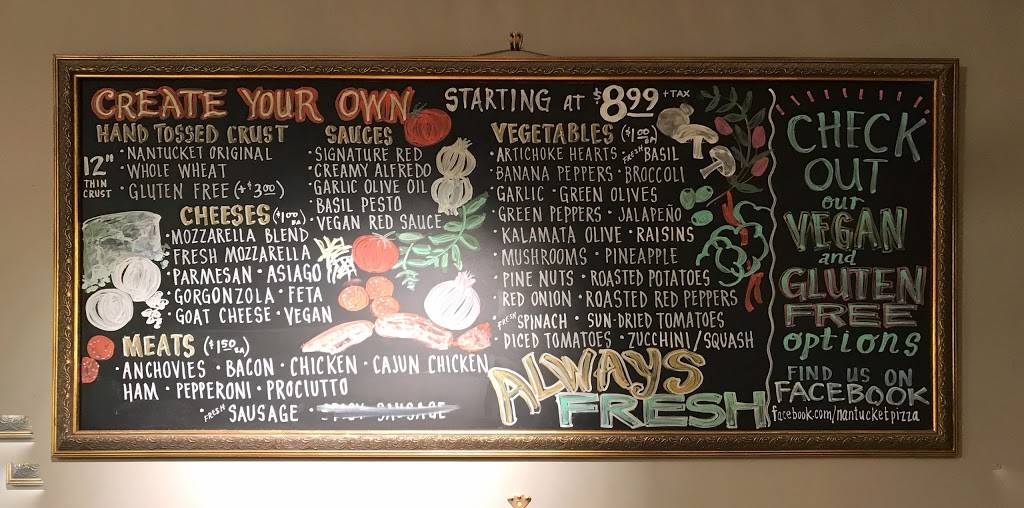 CREATE YOUR OWN
STARTING at $8.99 + TAX
HAND TOSSED CRUST
12"
THIN
CRUST
· NANTUCKET ORIGINAL
· WHOLE WHEAT
· GLUTEN FREE (+$3.00)
CHEESES ($1.00 EA)
· MOZZARELLA BLEND
· FRESH MOZZARELLA
· PARMESAN · ASIAGO
· GORGONZOLA · FETA
· GOAT CHEESE · VEGAN
SAUCES
· SIGNATURE RED
· CREAMY ALFREDO
· GARLIC OLIVE OIL
· BASIL PESTO
· VEGAN RED SAUCE
MEATS ($1.50 EA)
· ANCHOVIES · BACON · CHICKEN · CAJUN CHICKEN
HAM · PEPPERONI · PROCIUTTO
· FRESH SAUSAGE · SPICY SAUSAGE
VEGETABLES ($1.00 EA)
· ARTICHOKE HEARTS · FRESH BASIL
· BANANA PEPPERS · BROCCOLI
· GARLIC · GREEN OLIVES
· GREEN PEPPERS · JALAPEÑO
· KALAMATA OLIVE · RAISINS
· MUSHROOMS · PINEAPPLE
· PINE NUTS · ROASTED POTATOES
· RED ONION · ROASTED RED PEPPERS
· FRESH SPINACH · SUN-DRIED TOMATOES
· DICED TOMATOES · ZUCCHINI/SQUASH
ALWAYS
FRESH
CHECK
OUT
our
VEGAN
and
GLUTEN
FREE
options
FIND US ON
FACEBOOK
facebook.com/nantucketpizza